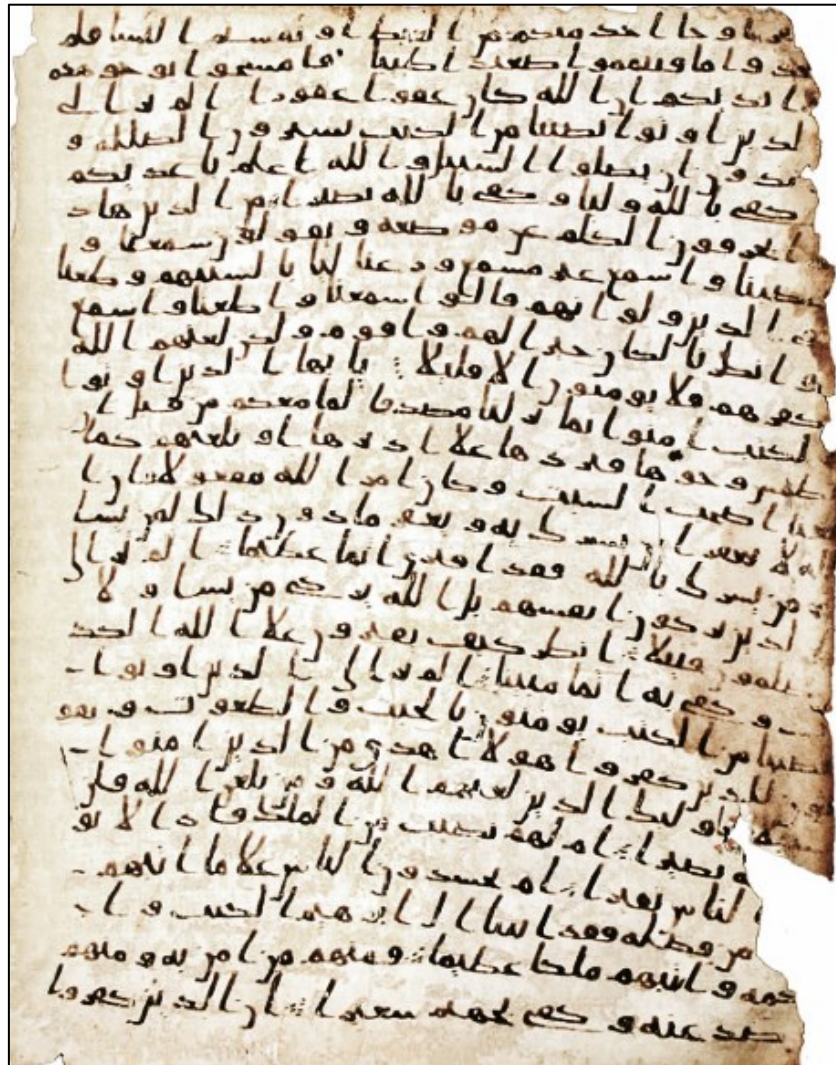 او جا احد منكم من الغيط او لمستم النسا فلم
تجدوا ما فتيمموا صعيدا طيبا فامسحوا بوجوهكم
و ايديكم ان الله كان عفوا غفورا الم تر الى
الذين اوتوا نصيبا من الكتب يشترون الضللة و
يريدون ان تضلوا السبيل والله اعلم باعديكم
وكفى بالله وليا وكفى بالله نصيرا من الذين هاد
وا يحرفون الكلم عن موضعه ويقولون سمعنا و
عصينا واسمع غير مسمع ورعنا ليا بالسنتهم وطعنا
في الدين ولو انهم قالوا سمعنا واطعنا واسمع
وانظرنا لكان خيرا لهم واقوم ولكن لعنهم الله
بكفرهم فلا يومنون الا قليلا يايها الذين اوتوا
الكتب امنوا بما نزلنا مصدقا لما معكم من قبل ان
نطمس وجوها فنردها علا ادبرها او نلعنهم كما
لعنا اصحب السبت وكان امر الله مفعولا ان ا
لله لا يغفر ان يشرك به ويغفر ما دون ذلك لمن يشا
من يشرك بالله فقد افترى اثما عظيما الم تر الى
الذين يزكون انفسهم بل الله يزكي من يشا ولا
يظلمون فتيلا انظر كيف يفترون علا الله الكذ
ب وكفى به اثما مبينا الم تر الى الذين اوتوا
نصيبا من الكتب يومنون بالجبت والطغوت ويقو
لون للذين كفروا هولا اهدى من الذين امنوا
اوليك الذين لعنهم الله ومن يلعن الله فلن
له نصيرا ام لهم نصيب من الملك فاذا لا يو
الناس نقيرا ام يحسدون الناس علا ما اتيهم
من فضله فقد اتينا ال ابرهيم الكتب وا
لحكمة واتينهم ملكا عظيما فمنهم من امن به ومنهم
صد عنه وكفى بجهنم سعيرا ان الذين كفروا